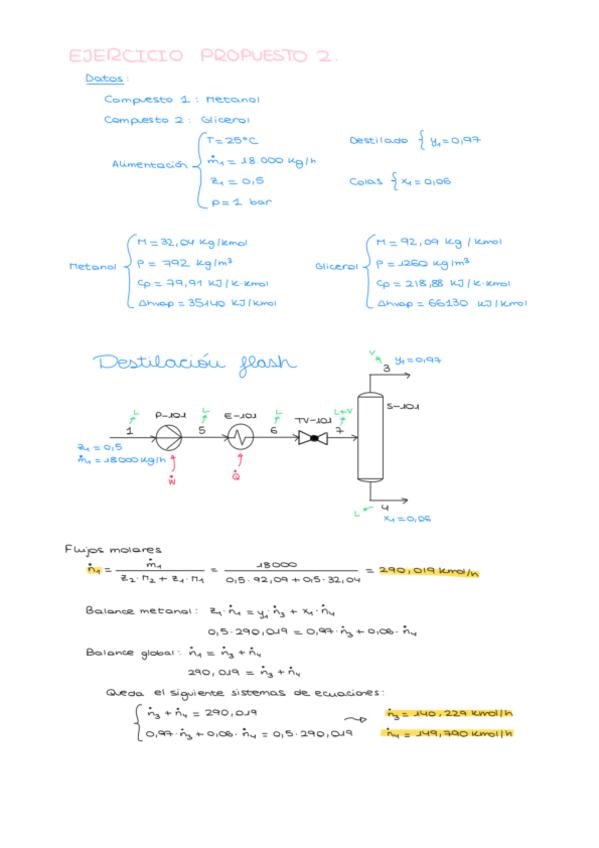 EJERCICIO PROPUESTO 2.
Datos:
Compuesto 1: Metanol
Compuesto 2: Glicerol
Alimentación { T = 25°C
ṁ₁ = 18.000 kg/h
z₁ = 0,5
p = 1 bar
Destilado { y₁ = 0,97
Colas { x₁ = 0,06
Metanol { M = 32,04 kg/kmol
ρ = 792 kg/m³
Cp = 79,91 kJ/k·kmol
Δhvap = 35140 kJ/kmol
Glicerol { M = 92,09 kg/kmol
ρ = 1260 kg/m³
Cp = 218,88 kJ/k·kmol
Δhvap = 66130 kJ/kmol
Destilación flash
V
3
y₁ = 0,97
S-101
L
P-101
L
E-101
L
TV-101
L+V
1
5
6
7
z₁ = 0,5
ṁ₁ = 18000 kg/h
Ẇ
Q̇
L
4
x₁ = 0,06
Flujos molares
ṅ₁ = ṁ₁ / (z₂·M₂ + z₁·M₁) = 18000 / (0,5·92,09 + 0,5·32,04) = 290,019 kmol/h
Balance metanol: z₁·ṅ₁ = y₁·ṅ₃ + x₁·ṅ₄
0,5·290,019 = 0,97·ṅ₃ + 0,06·ṅ₄
Balance global: ṅ₁ = ṅ₃ + ṅ₄
290,019 = ṅ₃ + ṅ₄
Queda el siguiente sistemas de ecuaciones:
{ ṅ₃ + ṅ₄ = 290,019
0,97·ṅ₃ + 0,06·ṅ₄ = 0,5·290,019
→ ṅ₃ = 140,229 kmol/h
ṅ₄ = 149,790 kmol/h